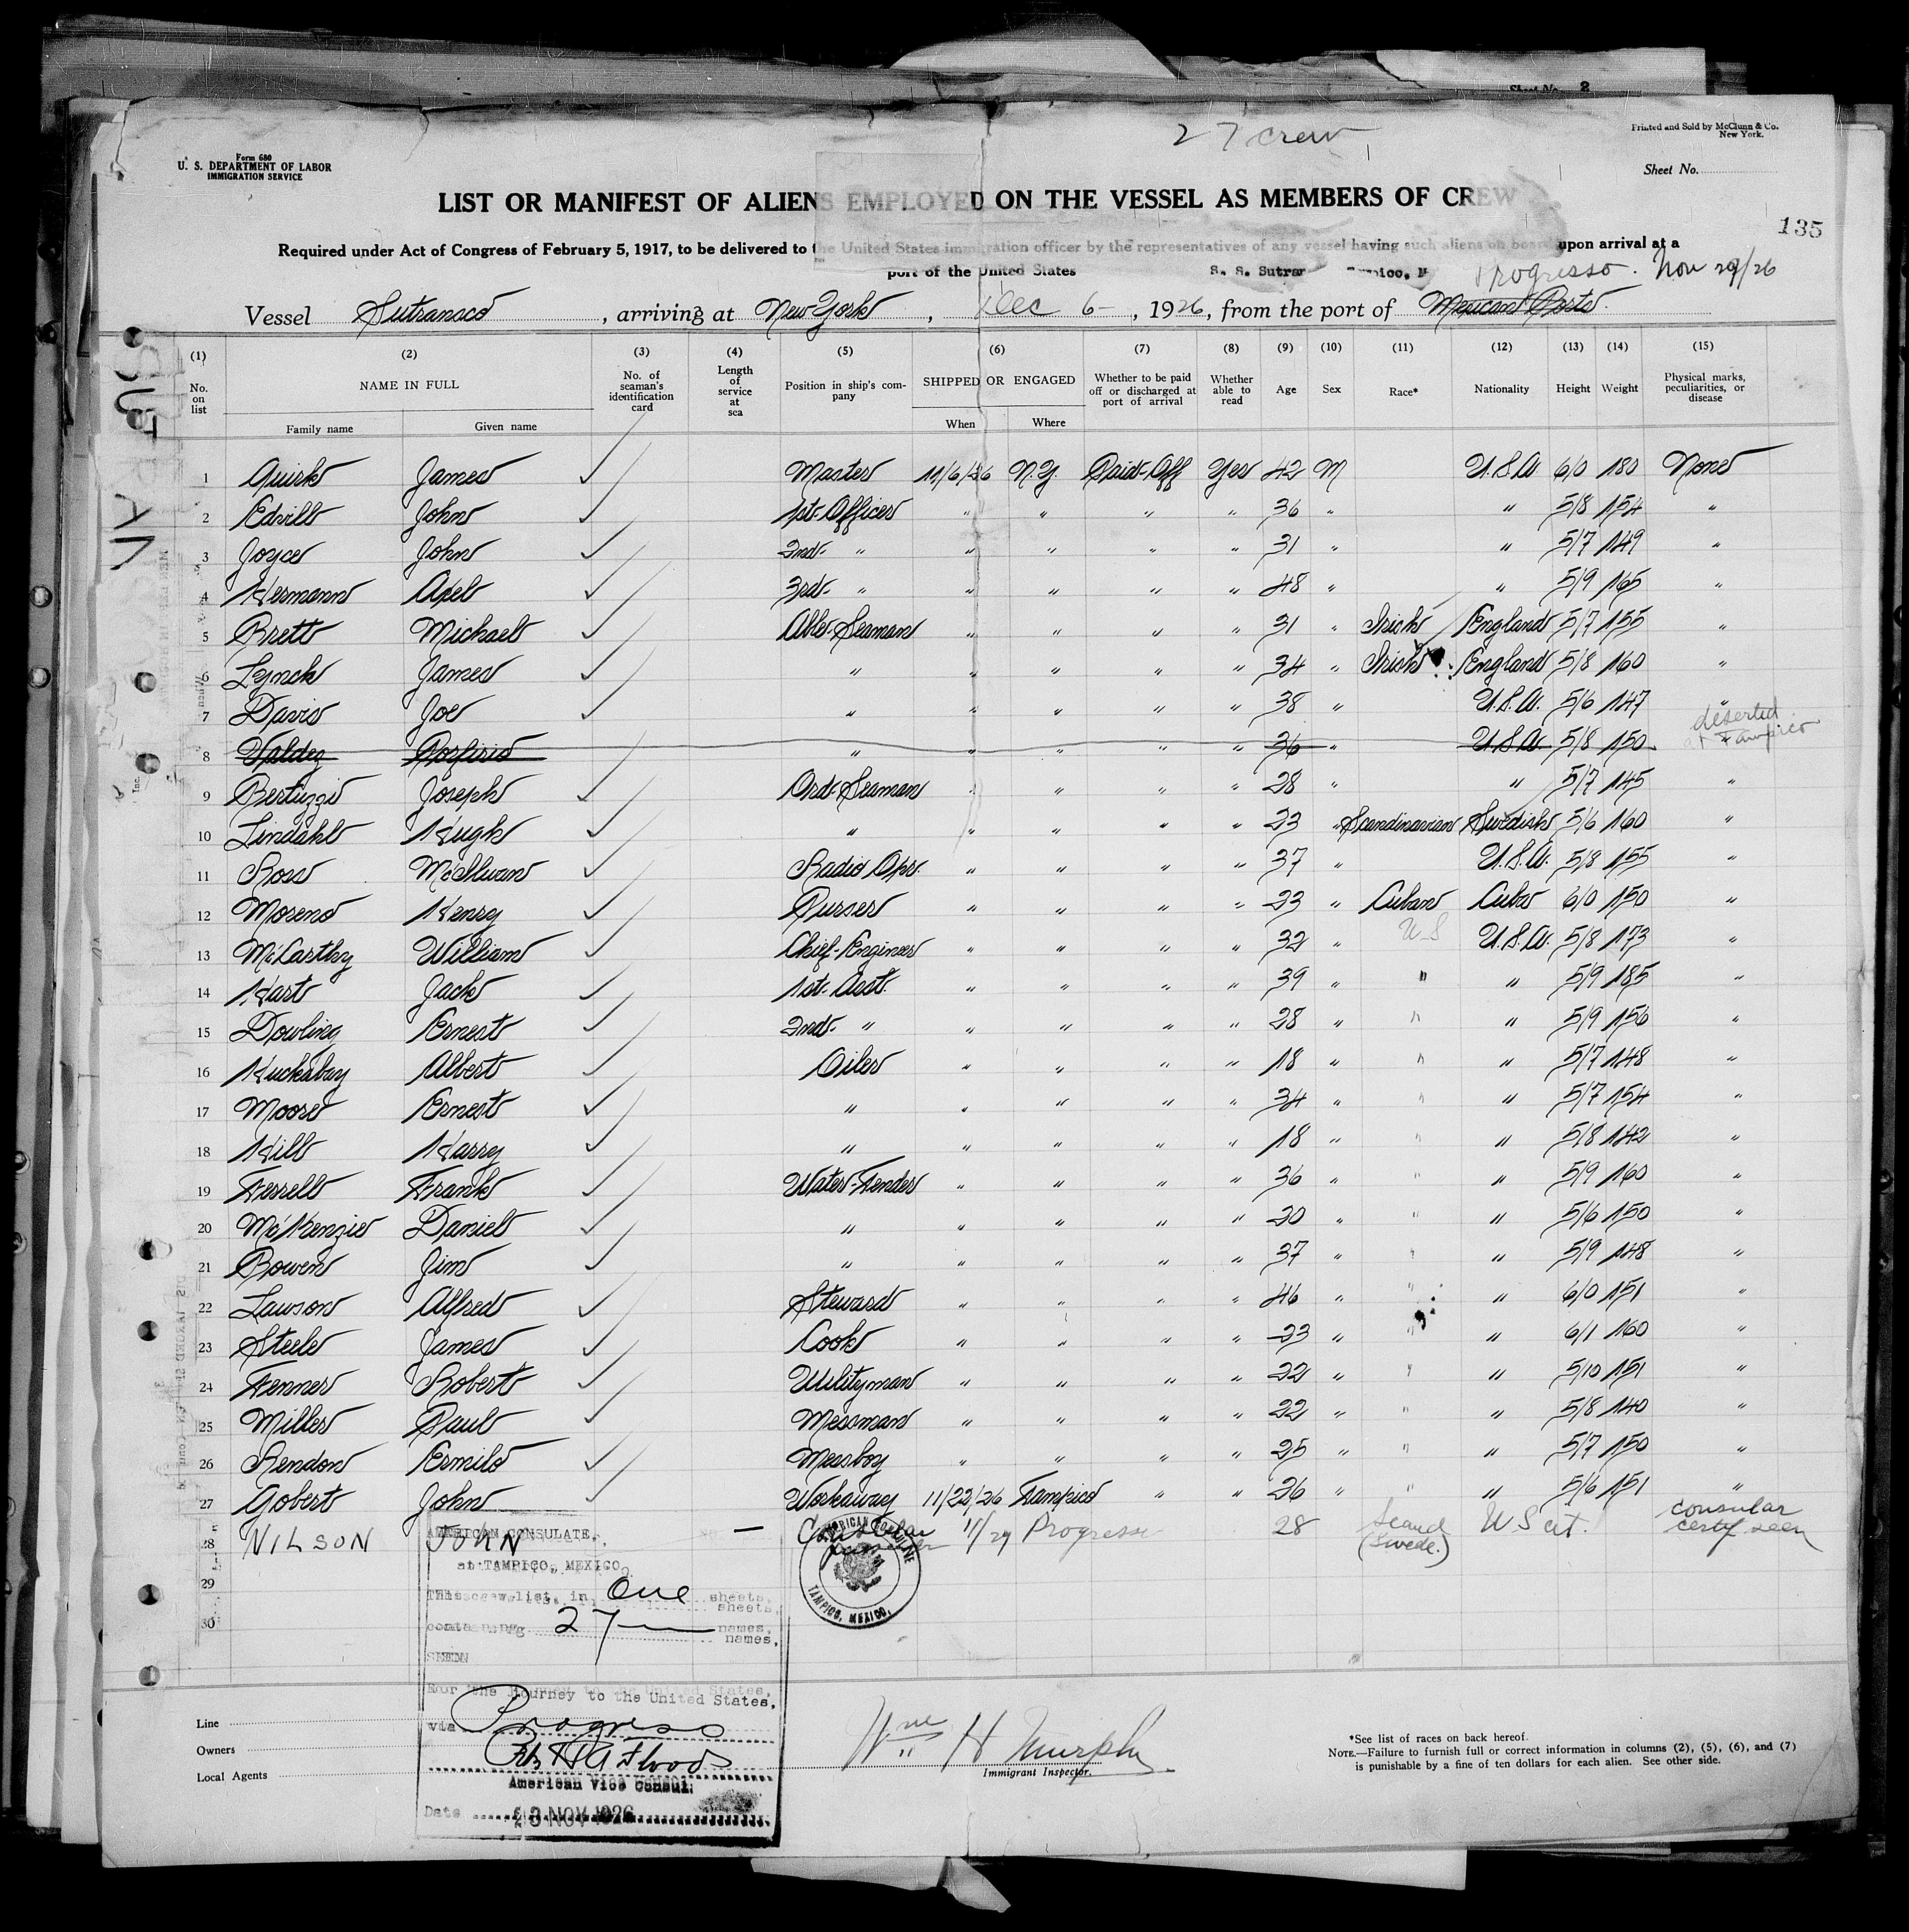 Sheet No. 2
27 crew
Printed and Sold by McClunn & Co.
New York.
Form 680
U. S. DEPARTMENT OF LABOR
IMMIGRATION SERVICE
Sheet No.
LIST OR MANIFEST OF ALIENS EMPLOYED ON THE VESSEL AS MEMBERS OF CREW
135
Required under Act of Congress of February 5, 1917, to be delivered to the United States immigration officer by the representatives of any vessel having such aliens on board upon arrival at a
port of the United States
Progresso. Nov 29/26
Vessel Sutransco, arriving at New York, Dec 6-, 1926, from the port of Mexican Ports.
(1) (2) (3) (4) (5) (6) (7) (8) (9) (10) (11) (12) (13) (14) (15)
No. on list NAME IN FULL No. of seaman's identification card Length of service at sea Position in ship's company SHIPPED OR ENGAGED Whether to be paid off or discharged at port of arrival Whether able to read Age Sex Race* Nationality Height Weight Physical marks, peculiarities, or disease
Family name Given name When Where
1 Quirk James Master 11/6/26 N.Y. Paid-Off Yes 42 M U.S.A 6/0 180 None
2 Edvill John 1st-Officer " " " " 36 " " 5/8 154 "
3 Joyce John 2nd- " " " " " 31 " " 5/7 149 "
4 Hermann Axel 3rd- " " " " " 48 " " 5/9 165 "
5 Brett Michael Able-Seaman " " " " 31 " Irish England 5/7 155 "
6 Lynch James " " " " " 34 " Irish England 5/8 160 "
7 Davis Joe " " " " " 38 " U.S.A. 5/6 147 "
8 Valdez Porfirio " " " " " 36 " U.S.A. 5/8 150 deserted at Tampico
9 Bertuzzi Joseph Ord-Seaman " " " " 28 " " 5/7 145 "
10 Lindahl Hugh " " " " " 23 " Scandinavian Swedish 5/6 160 "
11 Ross McIlwan Radio Opr. " " " " 37 " U.S.A. 5/8 155 "
12 Moreno Henry Purser " " " " 23 " Cuban Cuba 6/0 150 "
13 McCarthy William Chief-Engineer " " " " 32 " U-S U.S.A. 5/8 173 "
14 Hart Jack 1st-Asst. " " " " 39 " " " 5/9 185 "
15 Dowling Ernest 2nd- " " " " " 28 " " " 5/9 156 "
16 Huckabay Albert Oiler " " " " 18 " " " 5/7 148 "
17 Moore Ernest " " " " " 34 " " " 5/7 154 "
18 Hill Harry " " " " " 18 " " " 5/8 142 "
19 Ferrell Frank Water-Tender " " " " 36 " " " 5/9 160 "
20 McKenzie Daniel " " " " " 20 " " " 5/6 150 "
21 Bowen Jim " " " " " 37 " " " 5/9 148 "
22 Lawson Alfred Steward " " " " 46 " " " 6/0 151 "
23 Steele James Cook " " " " 23 " " " 6/1 160 "
24 Fenner Robert Utilityman " " " " 22 " " " 5/10 151 "
25 Miller Paul Messman " " " " 22 " " " 5/8 140 "
26 Rendon Ermilo Messboy " " " " 25 " " " 5/7 150 "
27 Gobert John Workaway 11/22/26 Tampico " " 26 " " " 5/6 151 "
28 NILSON JOHN — Consular passenger 11/29 Progreso 28 Scand (Swede.) U S cit. consular certif seen
29
30
AMERICAN CONSULATE,
at TAMPICO, MEXICO
This crew list, in one sheets,
containing 27 names,
SEEN
For the journey to the United States,
via Progreso
American Vice Consul
Date NOV 1926
AMERICAN CONSULATE
TAMPICO, MEXICO.
Line
Owners
Local Agents
Wm H Murphy
Immigrant Inspector.
*See list of races on back hereof.
NOTE.—Failure to furnish full or correct information in columns (2), (5), (6), and (7)
is punishable by a fine of ten dollars for each alien. See other side.